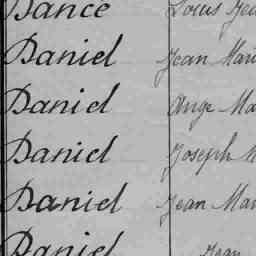 Dance Louis Jea
Daniel Jean Mari
Daniel Ange Ma
Daniel Joseph M
Daniel Jean Mar
Daniel Jean